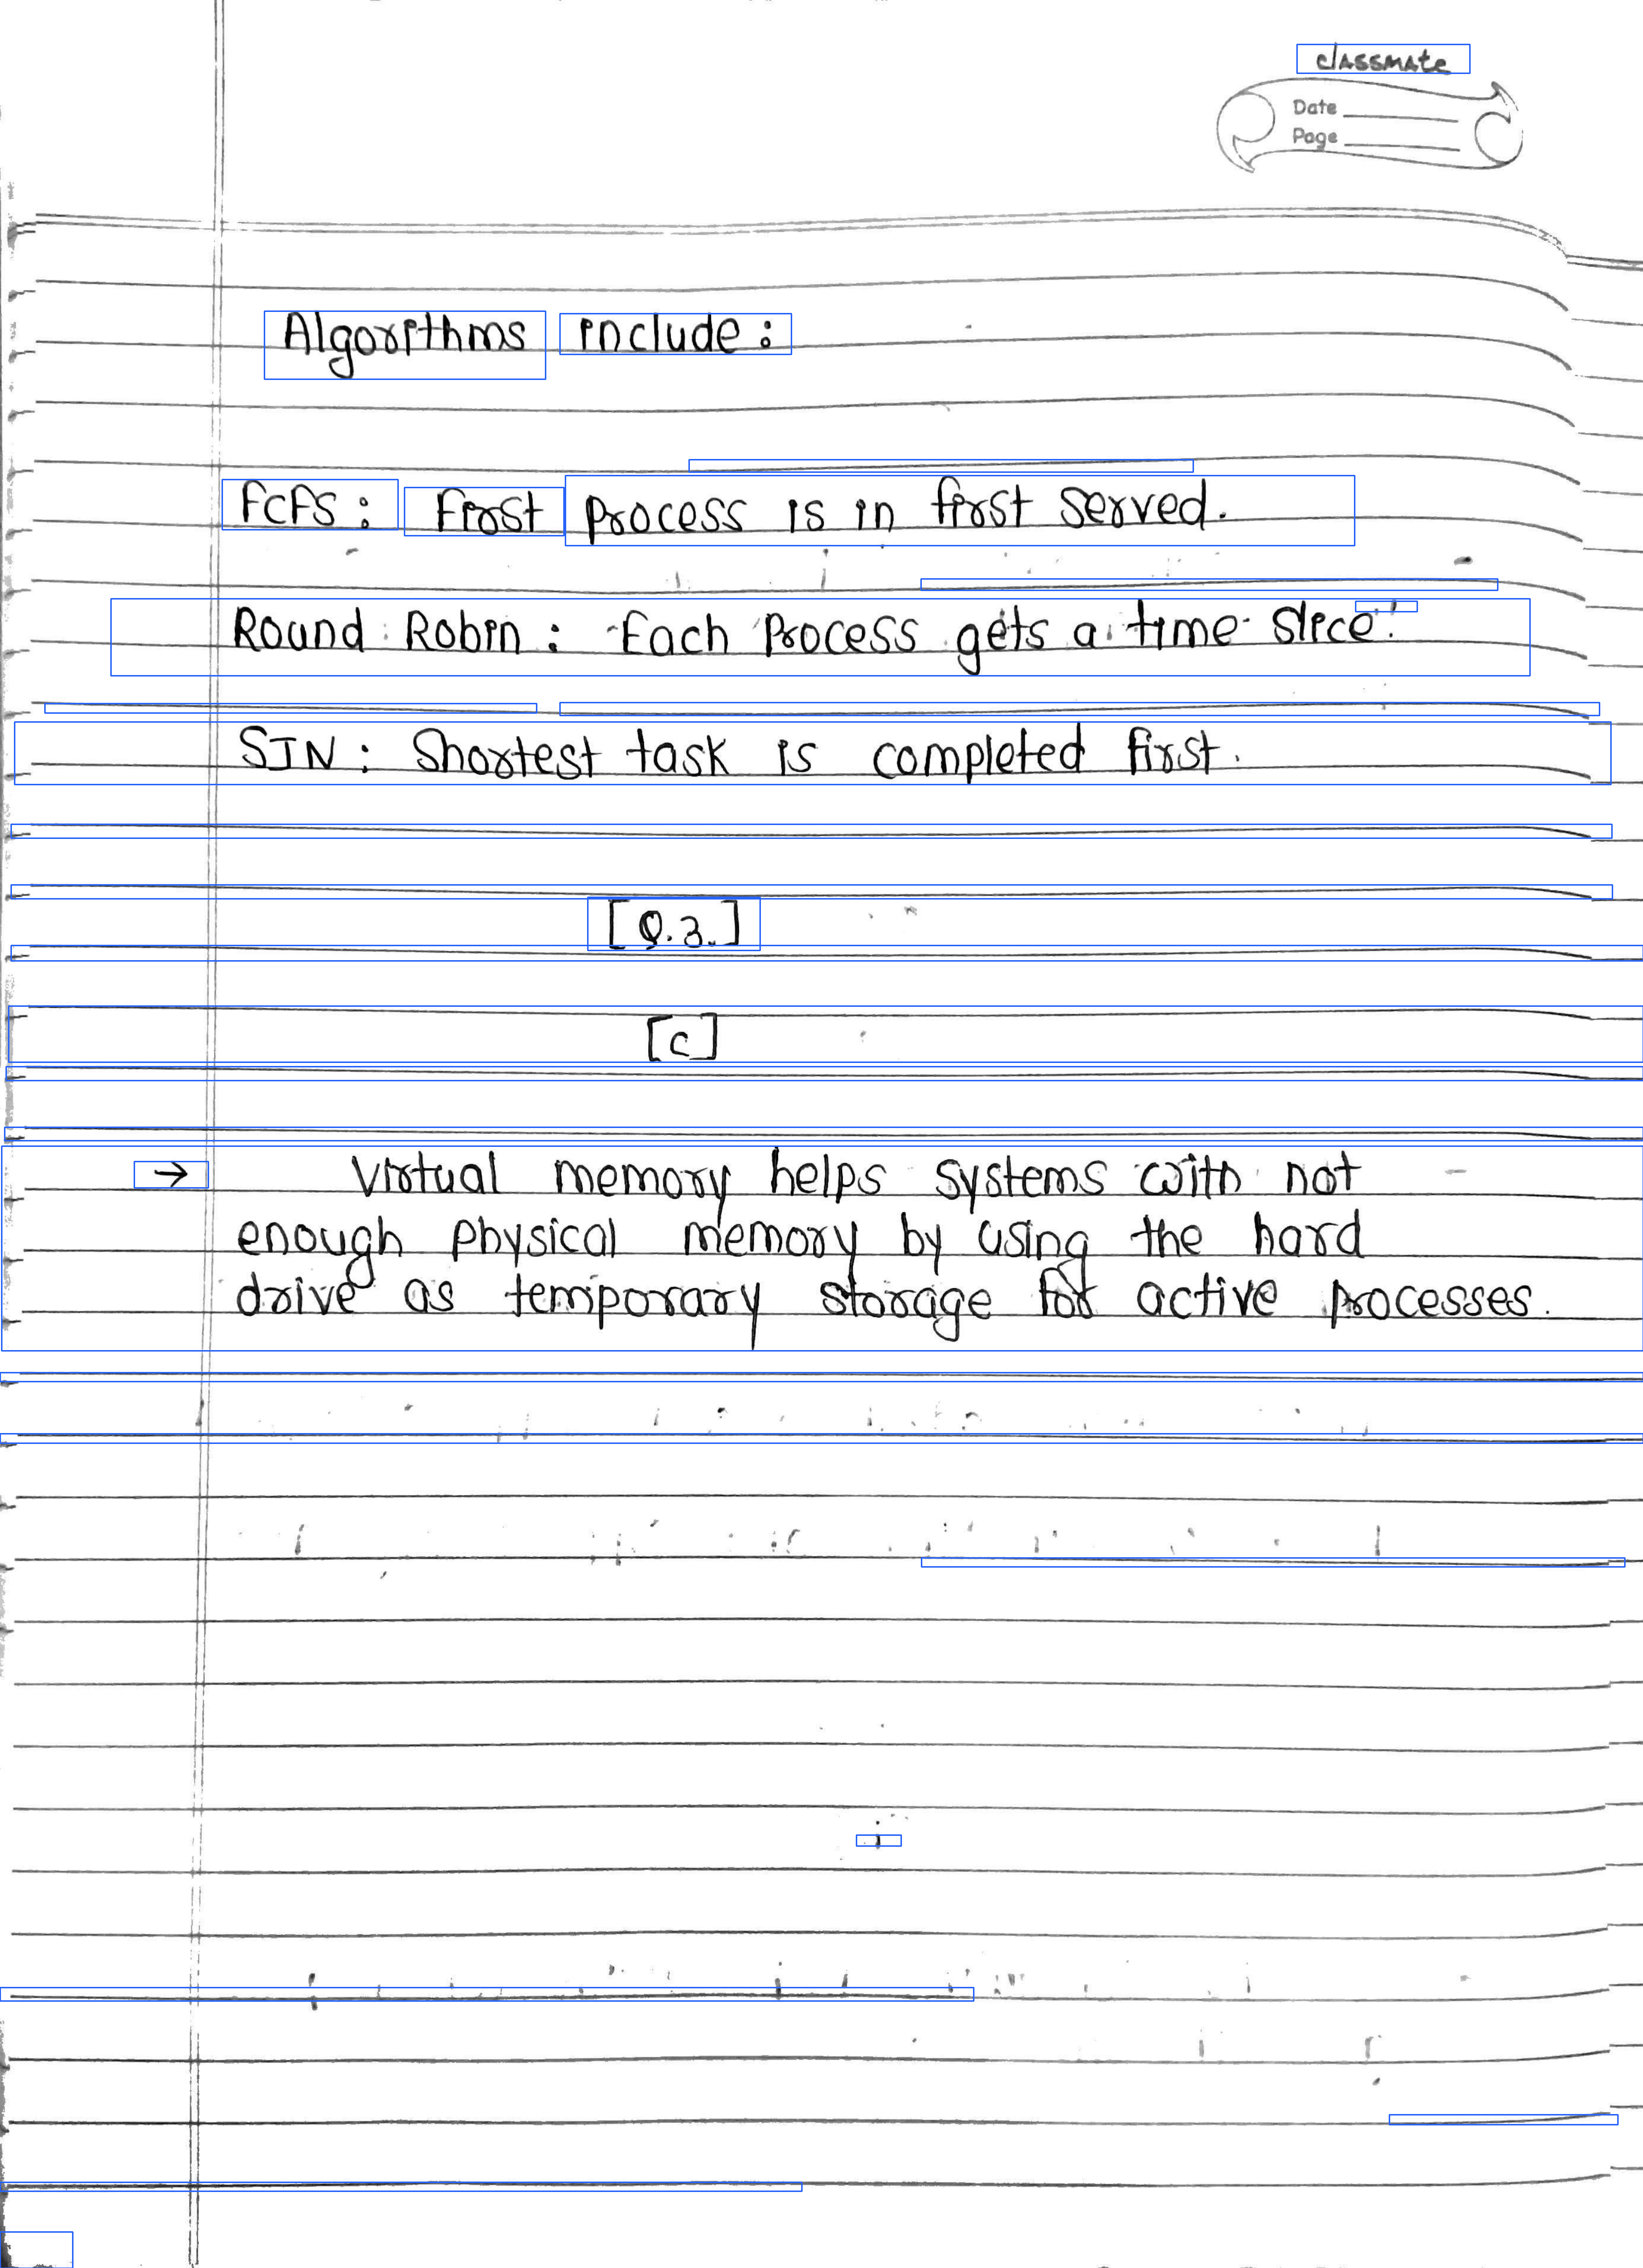 classmate
Date
Page
Algorithms include:
FCFS: First process is in first served.
Round Robin: Each Process gets a time slice.
SJN: Shortest task is completed first.
[Q.3.]
[C]
→ Virtual memory helps systems with not
enough physical memory by using the hard
drive as temporary storage for active processes.